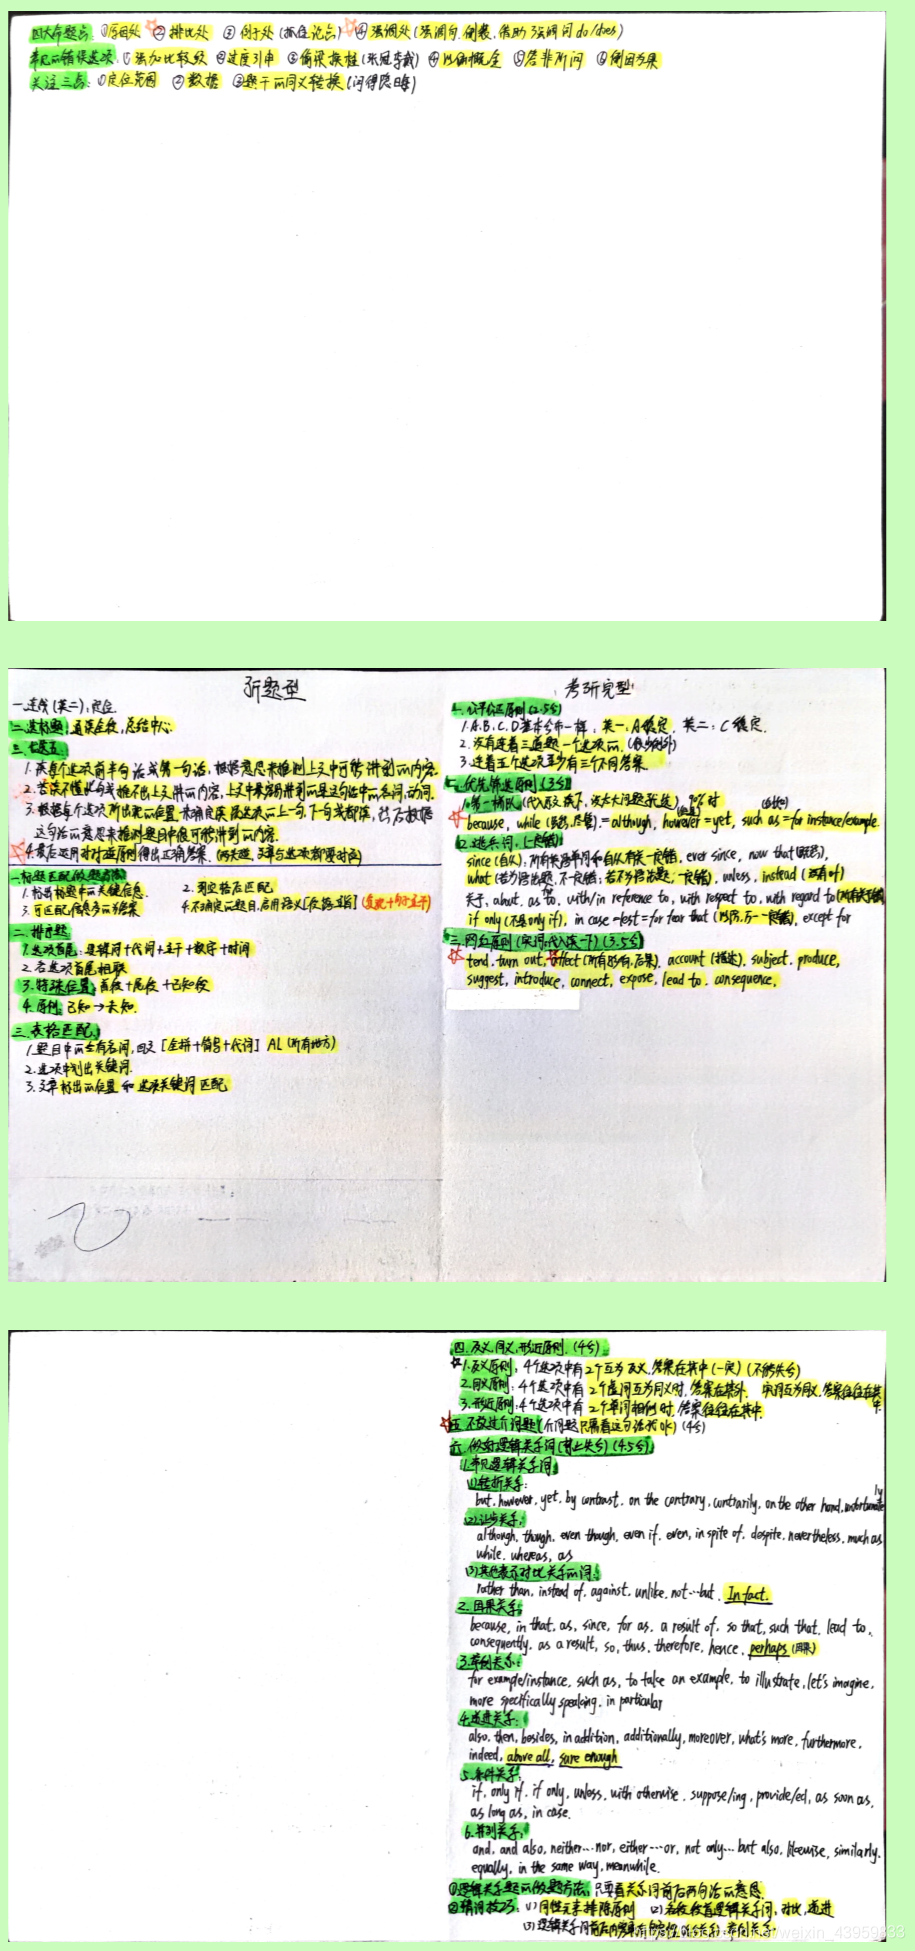 四大命题点: ①原因处 ②排比处 ③例子处 (抓住论点) ④强调处 (强调句, 倒装, 借助强调词 do/does)
常见的错误选项: ①强加比较级 ②过度引申 ③偷梁换柱 (张冠李戴) ④以偏概全 ⑤答非所问 ⑥倒因为果
关注三点: ①定位范围 ②数据 ③题干的同义转换 (问得隐晦)
新题型
一.连线 (英二): 定位.
二.选标题: 通读全段, 总结中心.
三.七选五
1.读每个选项前半句话或第一句话, 根据意思来推测上文中可能讲到的内容.
2.若读不懂此句或推不出上文讲的内容, 上文中最容易讲到的是这句话中的名词, 动词.
3.根据每个选项所出现的位置, 来确定读选项的上一句, 下一句或都读, 然后根据
这句话的意思来推测题目中很可能讲到的内容.
4.最后运用对应原则得出正确答案. (两关键, 文章与选项都要对应)
一.标题匹配做题有招
1.标出标题中的关键信息. 2.浏览落后匹配
3.可匹配信息多的为答案 4.不确定的题目, 启用语义
二.排序题
1.选项首尾: 逻辑词+代词+主干+数字+时间
2.各选项首尾相联
3.特殊位置: 首段+尾段+已知段
4.原则: 已知→未知.
三.表格匹配
1.题目中的全有名词, 回文 [全拼+缩写+代词] AL (所有地方)
2.选项中划出关键词.
3.文章标出的位置和选项关键词匹配
考研完型
一.公平公正原则 (2.5分)
1.A.B.C.D基本分布一样, 英一: A稳定, 英二: C稳定.
2.没有连着三道题一个选项的. (很少例外)
3.连着五个选项至少有三个不同答案.
二.优先筛选原则 (3分)
1.第一梯队 (代入原文读下, 没太大问题就选) 90%对
because, while (虽然, 尽管). = although, however = yet, such as = for instance/example.
2.逃兵词. (一定错)
since (自从): 所有关于单词和自从有关一定错, ever since, now that (既然),
what (若为语法题, 不一定错; 若不为语法题, 一定错), unless, instead (没有of)
关于, about, as to, with/in reference to, with respect to, with regard to (所有关于错)
if only (不是only if), in case = lest = for fear that (以防, 万一一定错), except for
三.网红原则 (实词, 代入读一下) (3.5分)
tend, turn out, effect (所有影响, 后果), account (描述), subject, produce,
suggest, introduce, connect, expose, lead to, consequence,
四.反义, 同义, 形近原则. (4分)
1.反义原则, 4个选项中有2个互为反义, 答案在其中 (一定) (不能失分)
2.同义原则: 4个选项中有2个虚词互为同义时, 答案在其外. 实词互为同义, 答案往往在其中.
3.形近原则: 4个选项中有2个单词相似时, 答案往往在其中.
五.不放过介词题 (介词题只需看这句话就OK) (4分)
六.做好逻辑关系词 (禁止失分) (4.5分)
1.常见逻辑关系词
(1)转折关系:
but, however, yet, by contrast, on the contrary, contrarily, on the other hand, unfortunately
(2)让步关系:
although, though, even though, even if, even, in spite of, despite, nevertheless, much as
while, whereas, as
(3)其他表示对比关系的词:
rather than, instead of, against, unlike, not…but, In fact.
2.因果关系:
because, in that, as, since, for as, a result of, so that, such that, lead to,
consequently, as a result, so, thus, therefore, hence, perhaps (因果)
3.举例关系:
for example/instance, such as, to take an example, to illustrate, let's imagine,
more specifically speaking, in particular
4.递进关系:
also, then, besides, in addition, additionally, moreover, what's more, furthermore,
indeed, above all, sure enough
5.条件关系:
if, only if, if only, unless, with otherwise, suppose/ing, provide/ed, as soon as,
as long as, in case.
6.并列关系:
and, and also, neither…nor, either…or, not only… but also, likewise, similarly,
equally, in the same way, meanwhile.
①逻辑关系题的做题方法: 只要看关系词前后两句话的意思.
②猜词技巧: (1)同性元素排除原则 (2)若段段首逻辑关系词, 对比, 递进
(3)逻辑关系词前后
weixin_43959833